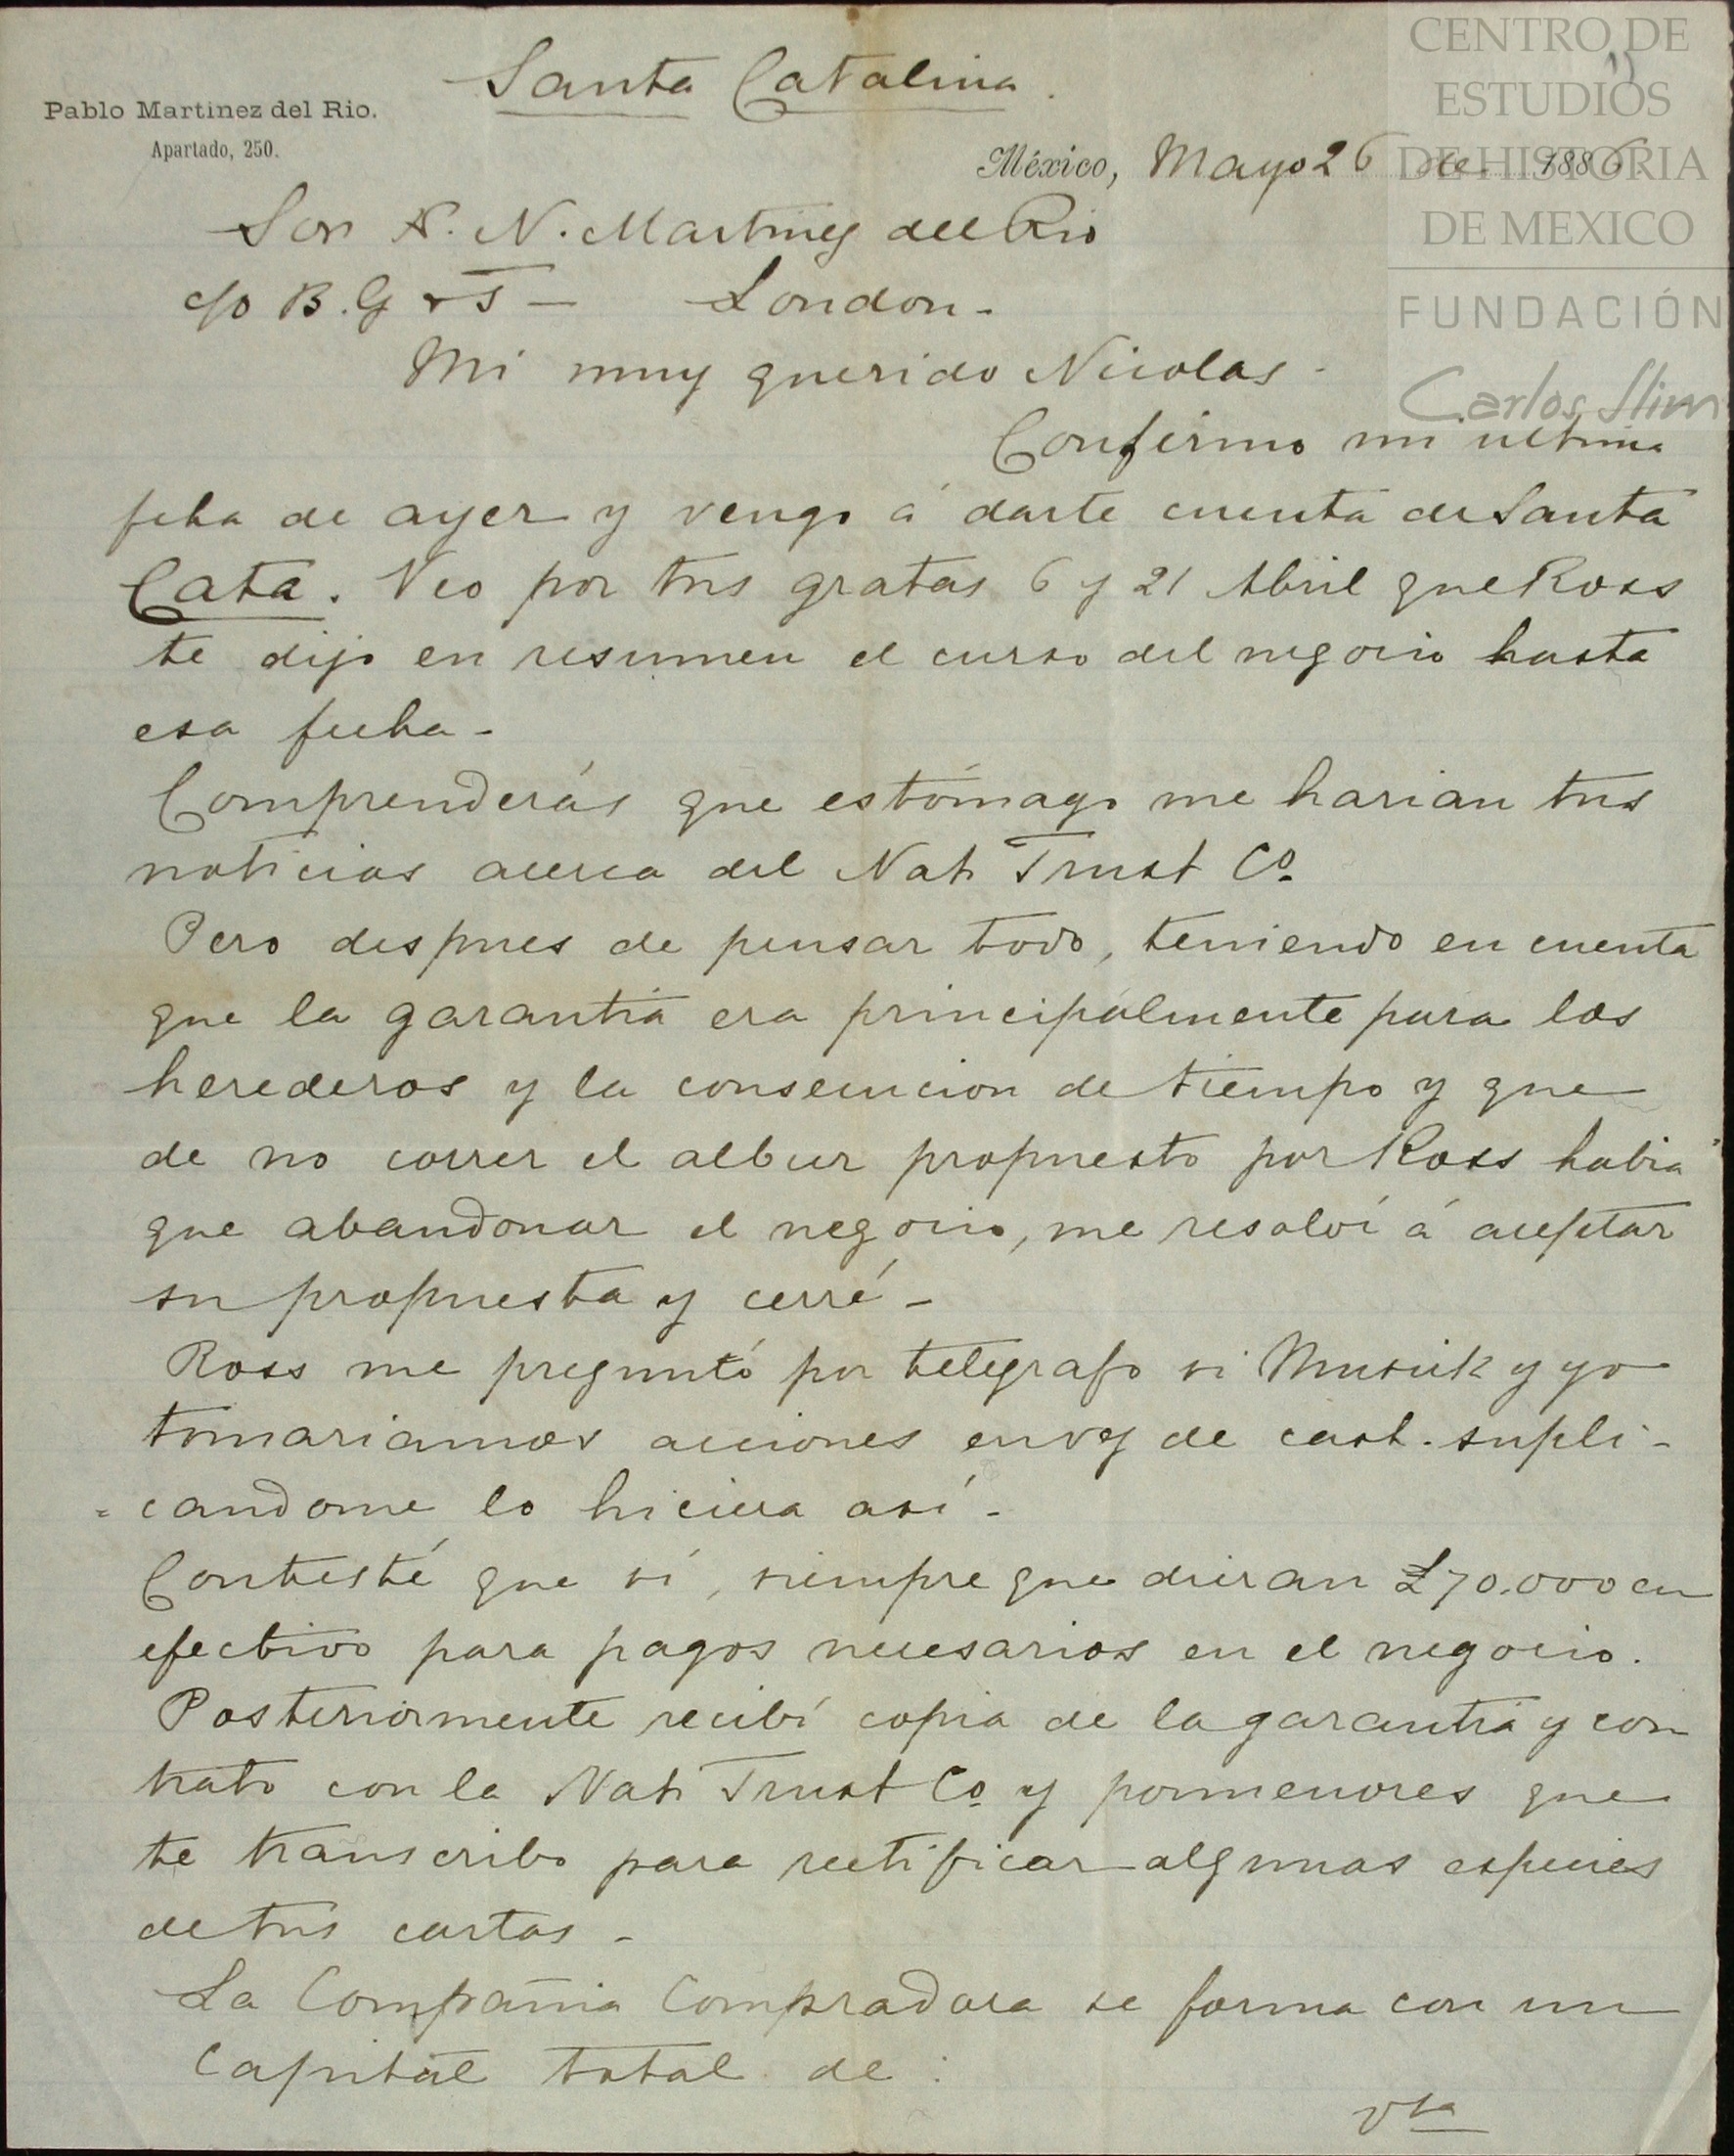 CENTRO DE
ESTUDIOS
DE HISTORIA
DE MEXICO
FUNDACIÓN
Carlos Slim
Santa Catalina.
Pablo Martinez del Rio.
Apartado, 250.
México, Mayo 26 de 1886.
Sor N. Martinez del Rio
c/o B. G & T — London -
Mi muy querido Nicolas -
Confirmo mi ultima
fcha de ayer y vengo á darte cuenta de Santa
Cata. Veo por tus gratas 6 y 21 Abril que Ross
te dijo en resumen el curso del negocio hasta
esa fecha -
Comprenderás que estómago me harian tus
noticias acerca del Natl Trust Co.
Pero despues de pensar todo, teniendo en cuenta
que la garantia era principálmente para los
herederos y la consecucion de tiempo y que
de no correr el albur propuesto por Ross habia
que abandonar el negocio, me resolví á aceptar
su propuesta y cerré -
Ross me preguntó por telégrafo si Musick y yo
tomariamos acciones en vez de cash. supli -
= candome lo hiciera así -
Contesté que sí, siempre que dieran £70.000 en
efectivo para pagos necesarios en el negocio.
Posteriormente recibí copia de la garantia y con
trato con la Natl Trust Co. y pormenores que
te transcribo para rectificar algunas especies
de tus cartas -
La Compañia Compradora se forma con un
Capital total de :
vta